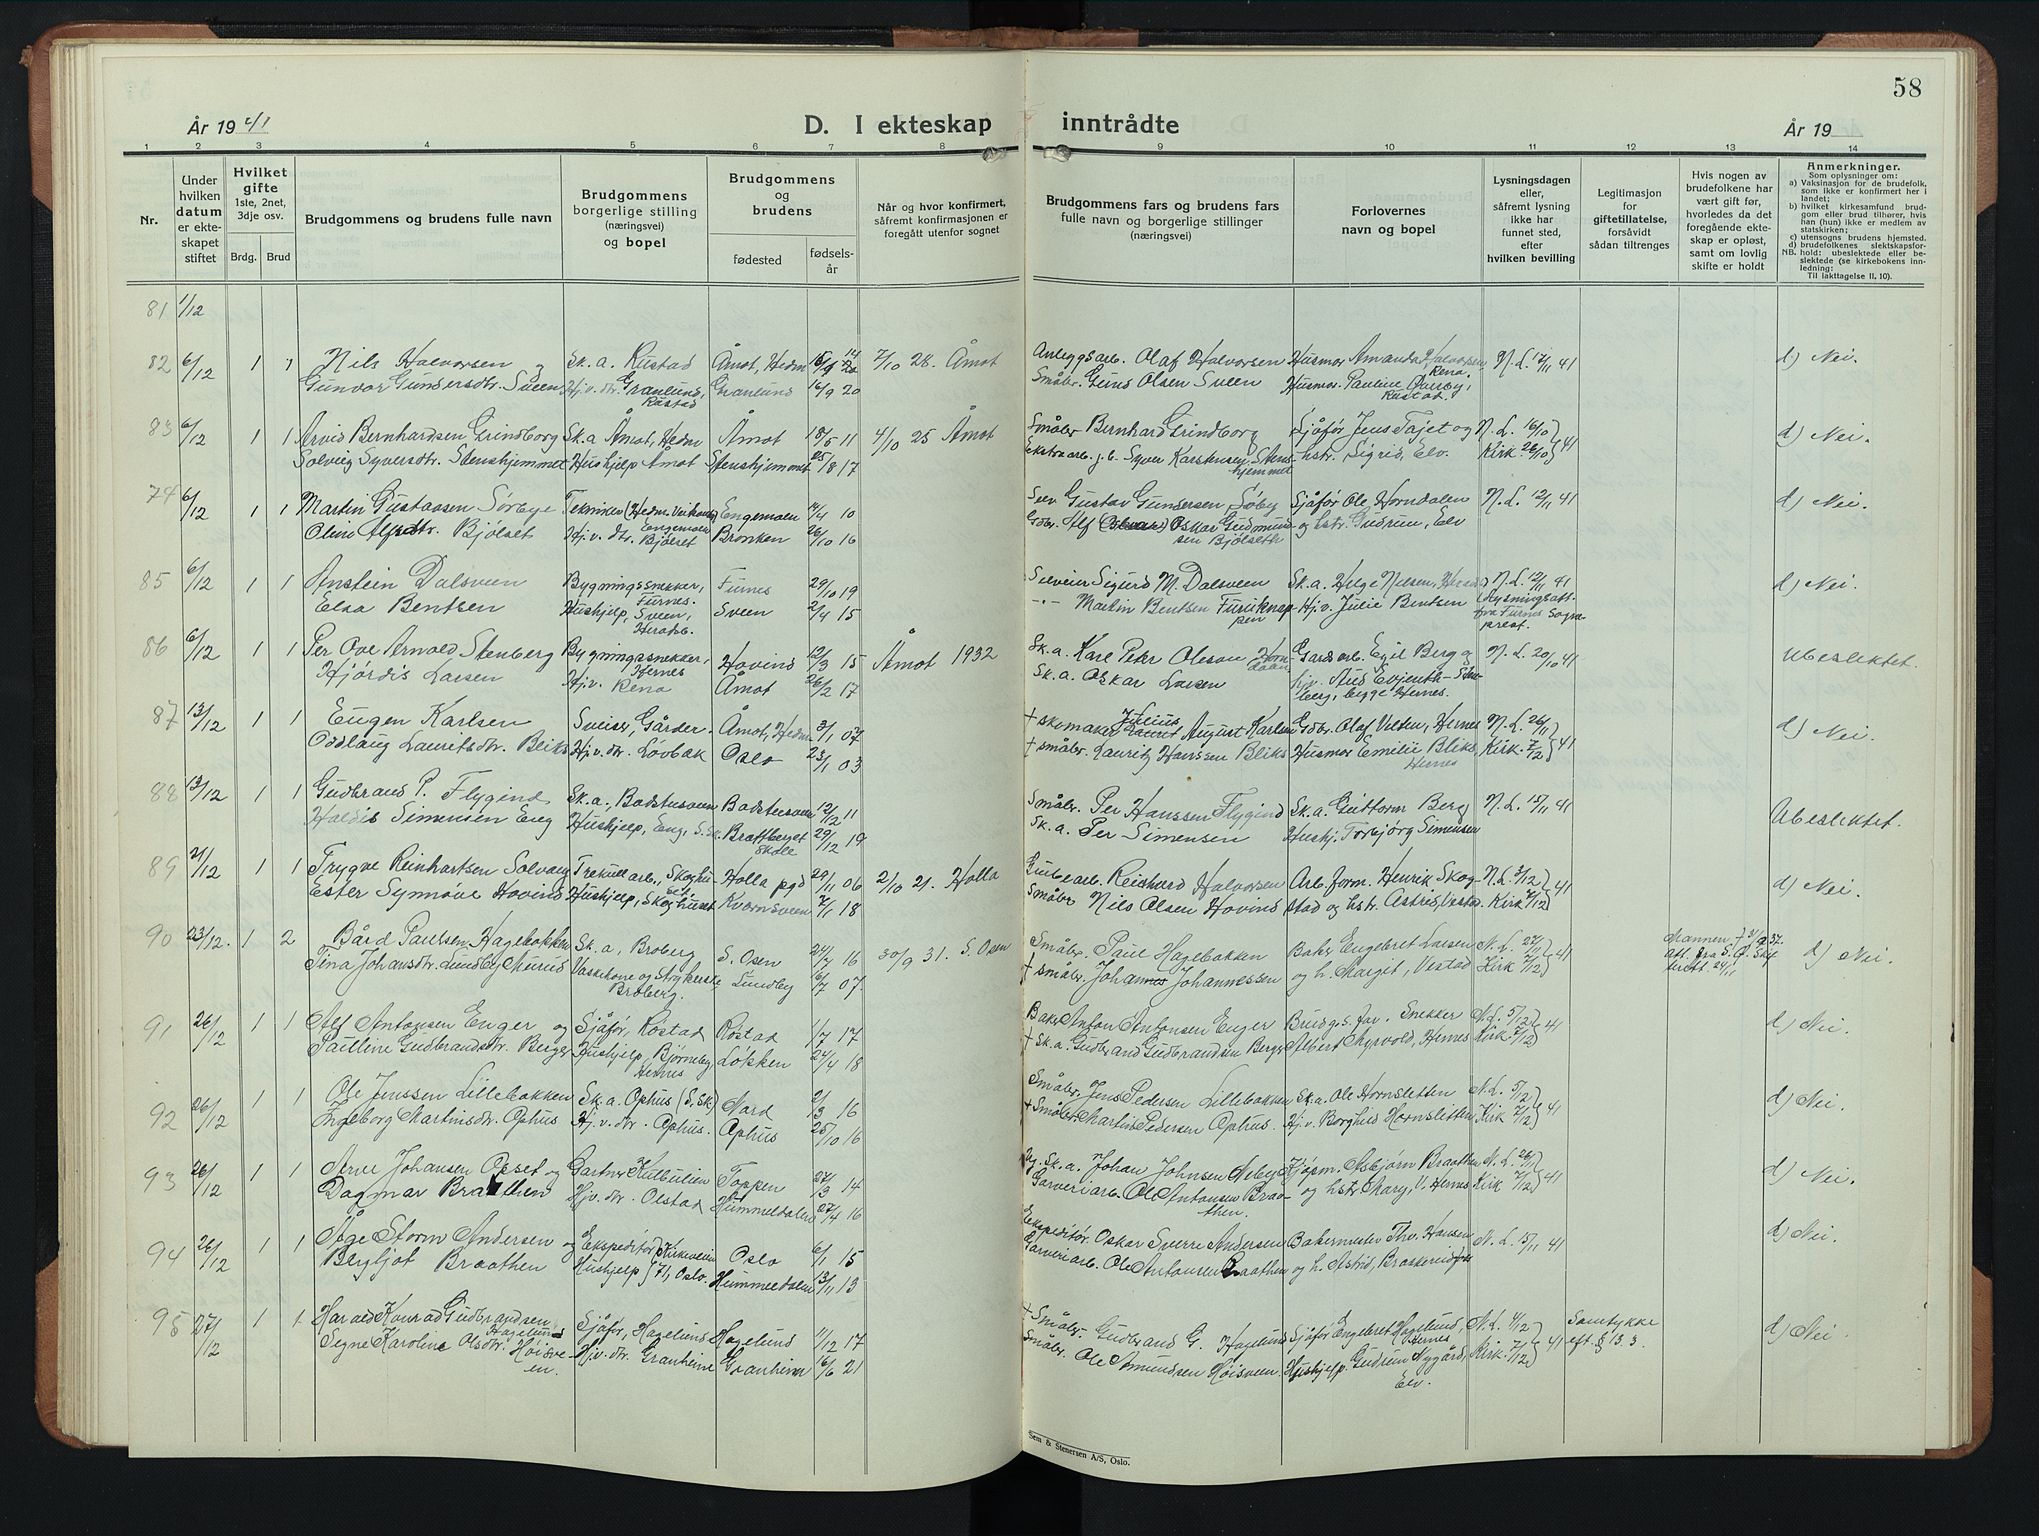 58
År 1941
D. I ekteskap inntrådte
År 19
1 2 3 4 5 6 7 8 9 10 11 12 13 14
Nr.
Under hvilken datum er ekteskapet stiftet
Hvilket gifte 1ste, 2net, 3dje osv.
Brdg. Brud
Brudgommens og brudens fulle navn
Brudgommens borgerlige stilling (næringsvei) og bopel
Brudgommens og brudens
fødested
fødselsår
Når og hvor konfirmert, såfremt konfirmasjonen er foregått utenfor sognet
Brudgommens fars og brudens fars fulle navn og borgerlige stillinger (næringsvei)
Forlovernes navn og bopel
Lysningsdagen eller, såfremt lysning ikke har funnet sted, efter hvilken bevilling
Legitimasjon for giftetillatelse, forsåvidt sådan tiltrenges
Hvis nogen av brudefolkene har vært gift før, hvorledes da det foregående ekteskap er opløst, samt om lovlig skifte er holdt
Anmerkninger.
Som oplysninger om:
a) Vaksinasjon for de brudefolk, som ikke er konfirmert her i landet;
b) hvilket kirkesamfund brudgom eller brud tilhører, hvis han (hun) ikke er medlem av statskirken;
c) utensogns brudens hjemsted.
d) brudefolkenes slektskapsforhold: ubeslektede eller beslektede (se kirkebokens innledning:
NB.
Til iakttagelse II. 10).
81 1/12
82 6/12 1 1 Nils Halvorsen og Sk. a. Rustad Åmot, Hedm 7/10 28. Åmot Anleggsarb. Olaf Halvorsen Husmor Amanda Halvorsen, Rena. N. L. 17/11 41 d) Nei.
Gunvor Gundersdtr. Sveen Hj. v. dtr. Granlund, Rustad Granlund 16/9 20 Småbr. Guns Olsen Sveen Husmor Pauline Øverby, Rustad.
83 6/12 1 1 Arvid Bernhardsen Grindborg Sk. a Åmot, Hedm Åmot 18/5 11 4/10 25 Åmot Småbr Bernhard Grindborg Sjåfør Jens Tajet og N. L. 16/10 41 d) Nei.
Solveig Syversdtr. Stenshjemmet Hushjelp Åmot Stenshjemmet 25/8 17 Ekstraarb. j. b. Syver Karstensen, Stenshjemmet hstr. Sigrid, Elv. Kirk. 26/10
74 6/12 1 1 Martin Gustavsen Sørbye Tekniker (Hedm. Veikontor) Engemoen Engemoen 14/4 10 Selv. Gustav Gundersen Søby Sjåfør Ole Horndalen N. L. 12/11 41 d) Nei.
Oline Alfsdtr. Bjølset Hj. v. dtr. Bjølset Bronken 26/10 16 Gbr. Alf Oskar Gudmundsen Bjølseth og hstr. Gudrun, Elv
85 6/12 1 1 Anstein Dalsveen Bygningssnekker, Furnes. Furnes 29/10 19 Selveier Sigurd M. Dalsveen Sk. a. Helge Nilsen, N. L. 12/11 41 d) Nei.
Elsa Bentsen Hushjelp, Sveen, Heradsb. Sveen 2/4 15 -"- Martin Bentsen Furuknappen Hj. v. Julie Bentsen (Lysningsatt. fra Furnes Sogneprest.
86 6/12 1 1 Per Ove Arnold Stenberg Bygningssnekker, Hernes Hovind 12/3 15 Åmot 1932 Sk. a. Karl Petr Olsson Gardsarb. Egil Berg og N. L. 20/10 41 Ubeslektet.
Hjørdis Larsen Hj. v. Rena Åmot 26/2 17 Sk. a. Oskar Larsen
87 13/12 1 1 Eugen Karlsen Sveiser, Gårder Åmot, Hedm 3/1 07 + skomaker Julius August Karlsen Gbr. Olaf Velten, Hernes N. L. 26/11 41 d) Nei.
Oddlaug Lauritsdtr. Bliks Hj. v. dtr. Løvbak Oslo 23/1 03 + småbr. Lauritz Hanssen Bliks Husmor Emilie Bliks Hernes Kirk. 7/12
88 13/12 1 1 Gudbrand P. Flygind Sk. a., Badstusveen Badstusveen 12/2 11 Småbr. Per Hanssen Flygind Sk. a. Guttorm Berg N. L. 15/11 41 Ubeslektet.
Haldis Simensen Eng Hushjelp, Eng, S. Sk. Brattberget Skole 29/12 19 Sk. a. Per Simensen Hushj. Torbjørg Simensen
89 21/12 1 1 Trygve Reinhartsen Solvang Trekullarb., Skoghuset Holla pgd 29/11 06 2/10 21. Holla Grubearb. Reichard Halvorsen Arb. form. Henrik Skogstad og hstr. Astrid, Vestad N. L. 3/12 41 d) Nei.
Ester Synnøve Hovind Hushjelp, Skoghuset Kvernsveen 7/1 18 Småbr Nils Olsen Hovind Kirk 7/12
90 23/12. 1 2 Bård Paulsen Hagebakken Sk. a, Broberg S. Osen 24/7 16 30/9 31. S. Osen Småbr. Paul Hagebakken Baker Engebret Larsen N. L. 27/11 41 d) Nei.
Tina Johansdtr. Lundby Murud Vaskekone og Strykerske Broberg. Lundby 6/7 07. + småbr. Johannes Johannessen og h. Margit, Vestad Kirk 7/12
91 26/12 1 1 Alf Antonsen Enger og Sjåfør, Rostad Rostad 1/7 17 Baker Anton Antonsen Enger Brudg.s far. Snekker N. L. 5/12 41 d) Nei.
Pauline Gudbrandsdtr. Berger Hushjelp, Bjørneby, Hernes Løkken 24/4 18 + Sk. a. Gudbrand Gudbrandsen Berger Albert Myrvold, Hernes Kirk. 7/12
92 26/12 1 1 Ole Jenssen Lillebakken Sk. a. Ophus (S. Sk) Nord 2/3 16 Småbr. Jens Pedersen Lillebakken Sk. a. Ole Hornsletten N. L. 5/12 41 d) Nei.
Ingeborg Martinsdtr. Ophus Hj. v. dtr. Ophus. Ophus 25/10 16 + Småbr Martin Pedersen Ophus. Hj. v. Borghild Hornsletten Kirk 7/12
93 26/12 1 1 Arve Johansen Opset og Gartner Toppen 27/3 14 Sk. a. Johan Johnsen Kjøpm. Asbjørn Braathen N. L. 26/11 41 d) Nei.
Dagmar Braathen Hj. v. dtr. Olstad Hummeldalen 07/4 16 Garveriarb. Ole Antonsen Braathen. og hstr. Mary, V. Hernes Kirk 7/12
94 26/12 1 1 Åge Storm Andersen og Ekspeditør Kirkeveien Oslo 6/1 15 Ekspeditør. Oskar Sverre Andersen Bakermester Thv. Hansen N. L. 15/11 41 d) Nei.
Bergljot Braathen Hushjelp 71, Oslo. Hummeldalen 13/11 13 Garveriarb. Ole Antonsen Braathen og h. Astrid,
95 27/12 1 1 Harald Konrad Gudbrandsen Hagelund Sjåfør, Hagelund Hagelund 11/12 17 + Småbr. Gudbrand G. Hagelund Sjåfør Engebret Hagelund, Hernes N. L. 4/12 41 Samtykke eft. § 13. 3. d) Nei
Signe Karoline Olsdtr. Høisveen. Hj. v. dtr. Granheim Granheim 16/6 21 Småbr. Ole Amundsen Høisveen. Hushjelp. Gudrun Nygård, Elv. Kirk. 7/12
Sem & Stenersen A/S, Oslo.